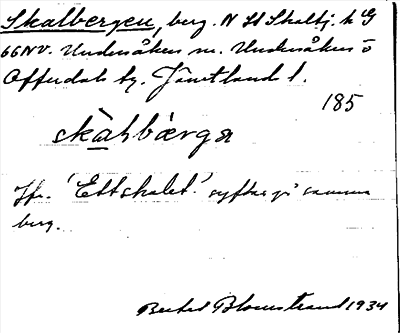 Skalbergen, berg. N
66NV. Undersåkers sn. Undersåkers o
Offerdals tg. Jämtlands l.
185
skàhbærga
Jfr. 'Ettskalet' syftar på samma
berg.
Bertil Blomstrand 1934